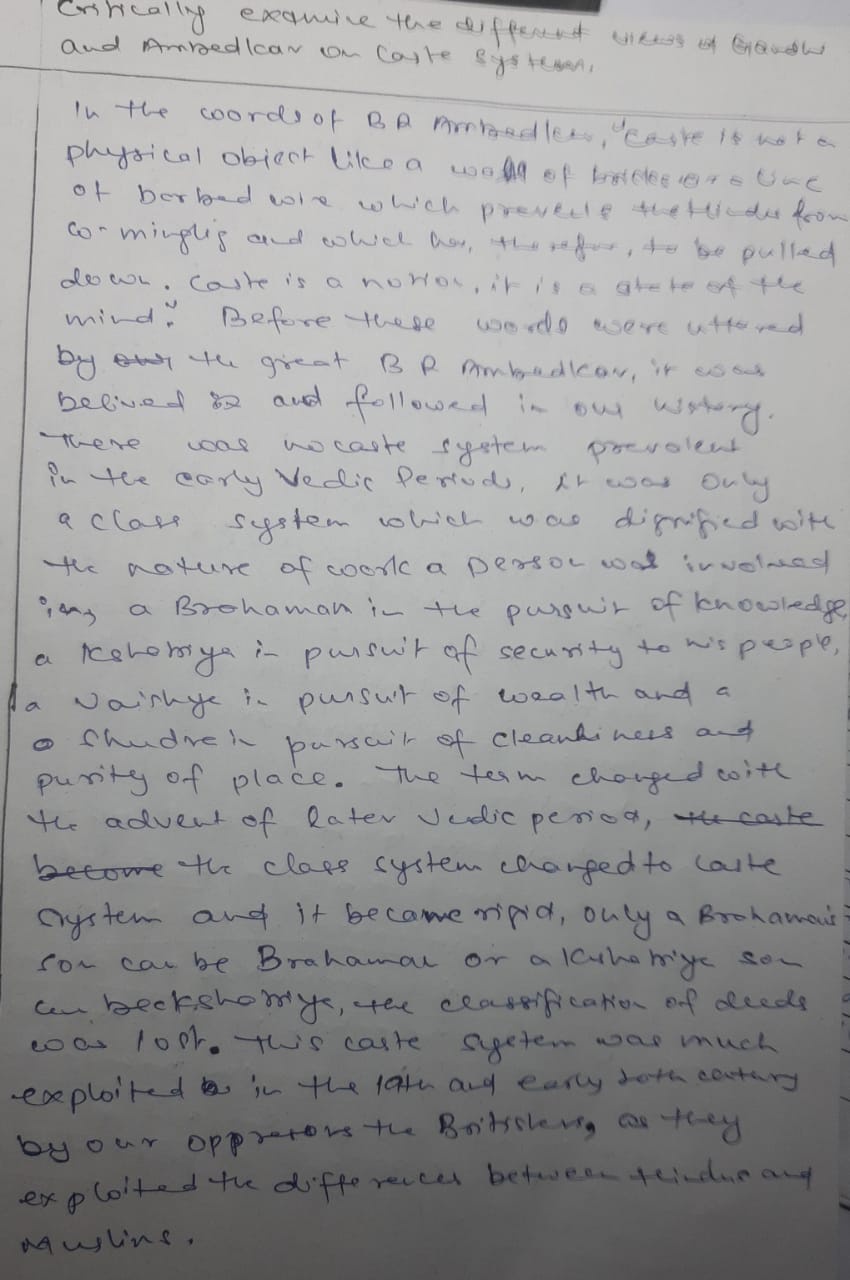 Critically examine the different views of Gandhi
and Ambedkar on Caste System.
In the words of B R Ambedkar, "Caste is not a
physical object like a wall of bricks or a line
of barbed wire which prevents the Hindus from
co-mingling and which has, therefore, to be pulled
down. Caste is a notion, it is a state of the
mind". Before these words were uttered
by the great B R Ambedkar, it was
belived and followed in our history.
There was no caste system prevalent
in the early Vedic Periods, it was only
a class system which was dignified with
the nature of work a person was involved
in, a Brohaman in the pursuit of knowledge,
a Kshatriya in pursuit of security to his people,
a Vaishye in pursuit of wealth and a
Shudre in pursuit of cleanliness and
purity of place. The term changed with
the advent of later Vedic period, the caste
become the class system changed to caste
system and it became rigid, only a Brohaman's
son can be Brahaman or a Kshatriye son
can be Kshatriye, the classification of deeds
was lost. This caste system was much
exploited in the 19th and early 20th century
by our oppressors the Britishers, as they
exploited the differences between Hindus and
Muslims.